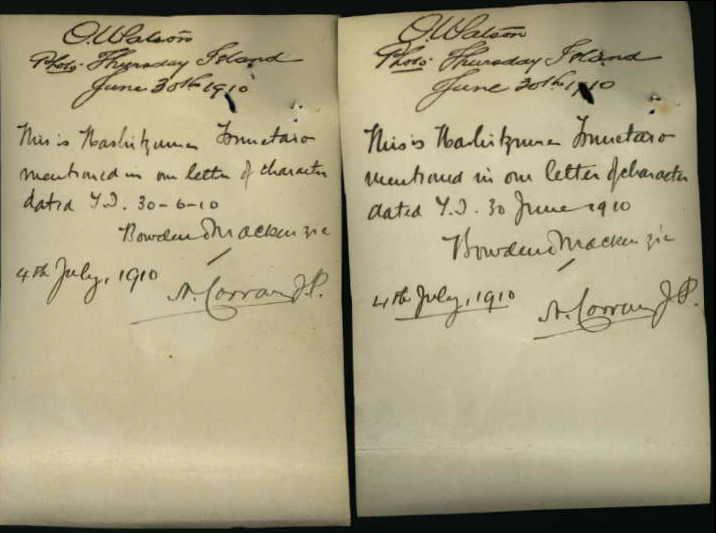 O. Watson
Photo. Thursday Island
June 30th 1910
This is Hashitzume Tsunetaro
mentioned in our letter of character
dated T.I. 30-6-10
Bowden Mackenzie
4th July, 1910
A. Corran J.P.
O. Watson
Photo. Thursday Island
June 30th 1910
This is Hashitzume Tsunetaro
mentioned in our letter of character
dated T.I. 30 June 1910
Bowden Mackenzie
4th July, 1910
A. Corran J.P.